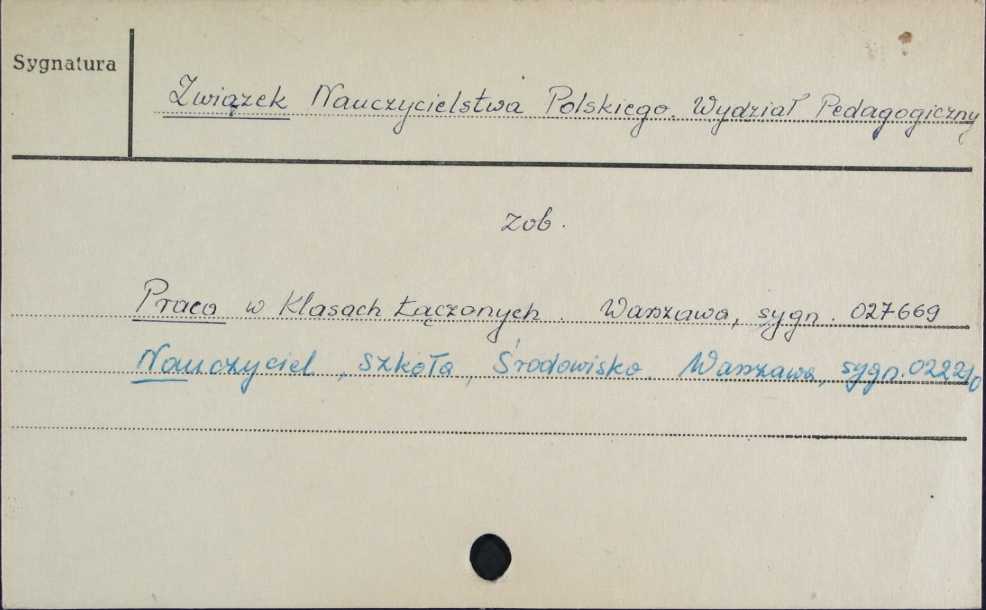 Sygnatura
Związek Nauczycielstwa Polskiego. Wydział Pedagogiczny
zob.
Praca w Klasach Łączonych. Warszawa, sygn. 027669
Nauczyciel, Szkoła, Środowisko. Warszawa, sygn. 022210